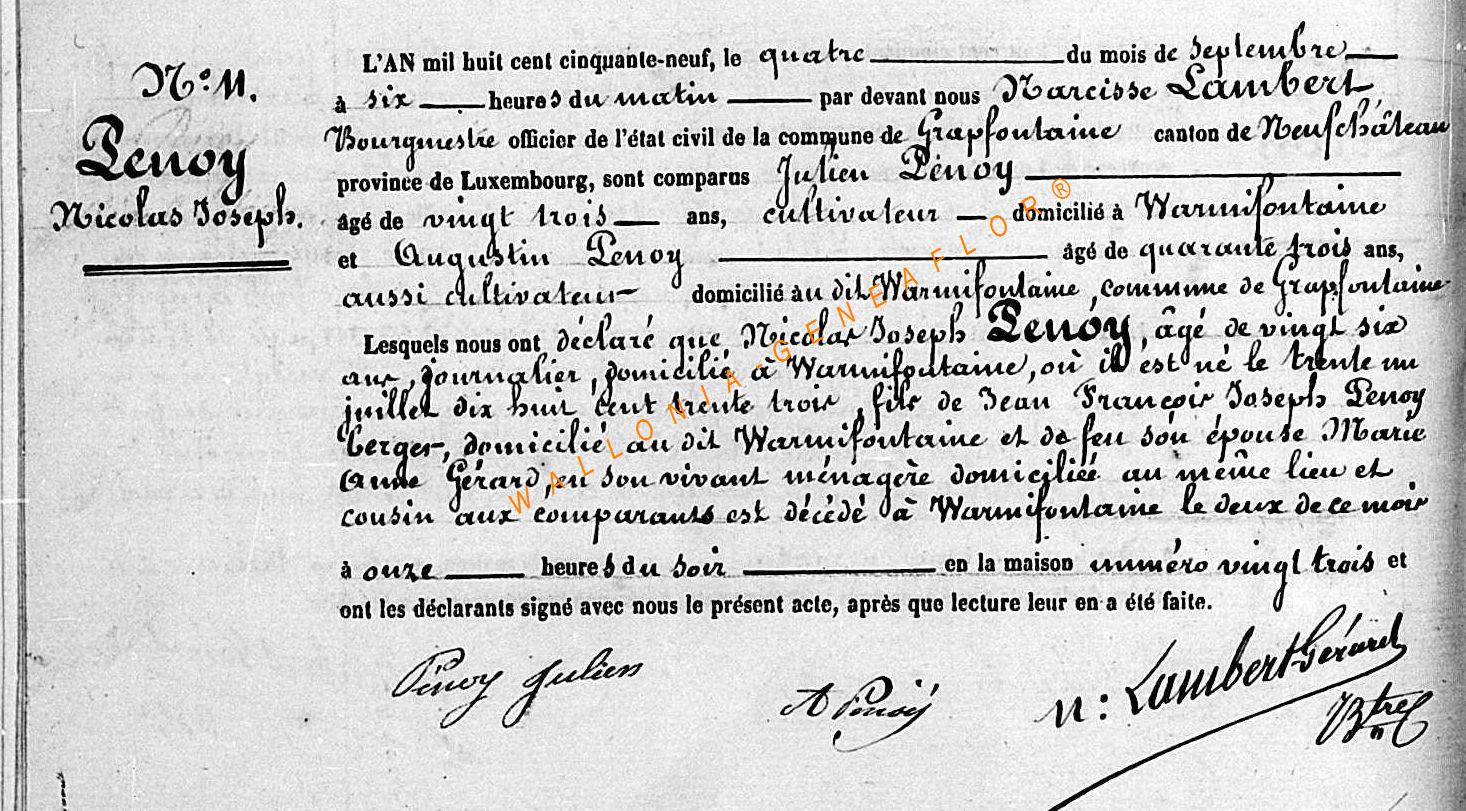 N.° 11.
Penoy
Nicolas Joseph.
L'AN mil huit cent cinquante-neuf, le quatre du mois de Septembre
à six heures du matin par devant nous Narcisse Lambert
Bourgmestre officier de l'état civil de la commune de Grapfontaine canton de Neufchâteau
province de Luxembourg, sont comparus Julien Pénoy
âgé de vingt trois ans, cultivateur domicilié à Warmifontaine
et Augustin Penoy âgé de quarante trois ans,
aussi cultivateur domicilié au dit Warmifontaine, commune de Grapfontaine
Lesquels nous ont déclaré que Nicolas Joseph Penoy, âgé de vingt six
ans, journalier, domicilié à Warmifontaine, où il est né le trente un
juillet dix huit cent trente trois, fils de Jean François Joseph Penoy
berger, domicilié au dit Warmifontaine et de feu son épouse Marie
Anne Gérard, en son vivant ménagère domiciliée au même lieu et
cousin aux comparants est décédé à Warmifontaine le deux de ce mois
à onze heures du soir en la maison numéro vingt trois et
ont les déclarants signé avec nous le présent acte, après que lecture leur en a été faite.
Pénoy Julien
A Penoÿ
N: Lambert-Gérard
Btre
WALLONIA-GENEAFLOR®